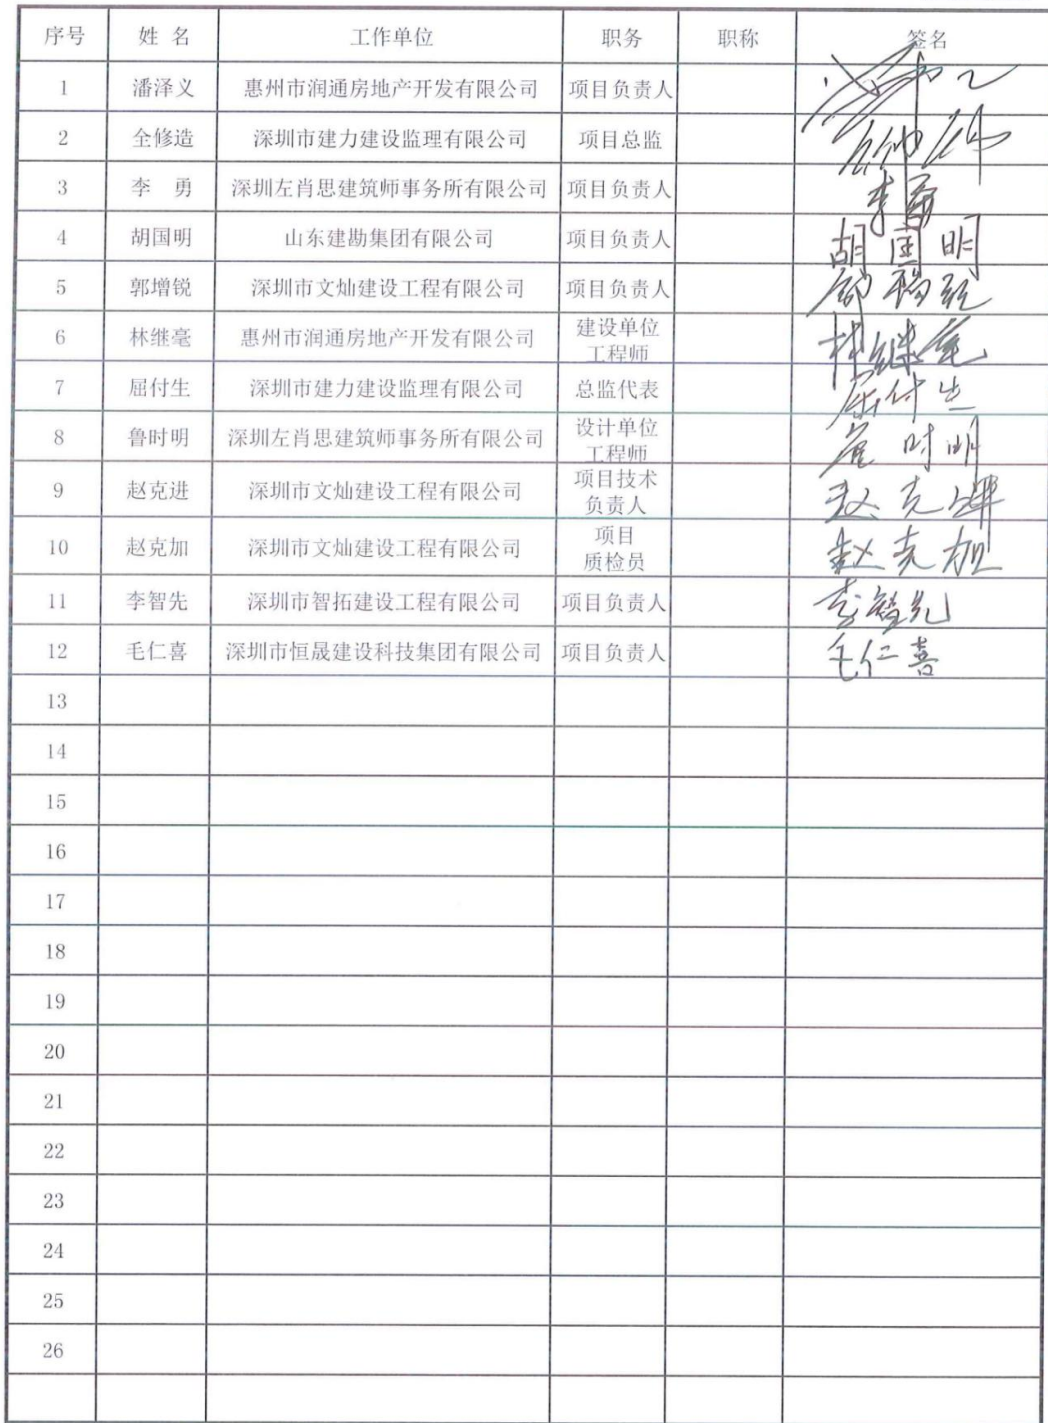 序号 姓 名 工作单位 职务 职称 签名
1 潘泽义 惠州市润通房地产开发有限公司 项目负责人
2 全修造 深圳市建力建设监理有限公司 项目总监
3 李 勇 深圳左肖思建筑师事务所有限公司 项目负责人 李勇
4 胡国明 山东建勘集团有限公司 项目负责人 胡国明
5 郭增锐 深圳市文灿建设工程有限公司 项目负责人
6 林继毫 惠州市润通房地产开发有限公司 建设单位 林继毫
工程师
7 屈付生 深圳市建力建设监理有限公司 总监代表 屈付生
8 鲁时明 深圳左肖思建筑师事务所有限公司 设计单位 鲁时明
工程师
9 赵克进 深圳市文灿建设工程有限公司 项目技术 赵克进
负责人
10 赵克加 深圳市文灿建设工程有限公司 项目 赵克加
质检员
11 李智先 深圳市智拓建设工程有限公司 项目负责人 李智先
12 毛仁喜 深圳市恒晟建设科技集团有限公司 项目负责人 毛仁喜
13
14
15
16
17
18
19
20
21
22
23
24
25
26